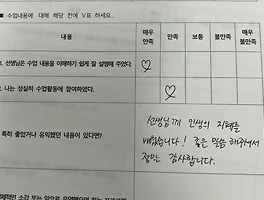 ■ 수업내용에 대해 해당 칸에 V표 하세요..
내용 매우 만족 만족 보통 불만족 매우 불만족
1. 선생님은 수업 내용을 이해하기 쉽게 잘 설명해 주었다. ♡
2. 나는 성실히 수업활동에 참여하였다. ♡
특히 좋았거나 유익했던 내용이 있다면?
선생님께 인생의 지혜를
배웠습니다! 좋은 말씀 해주셔서
정말 감사합니다.